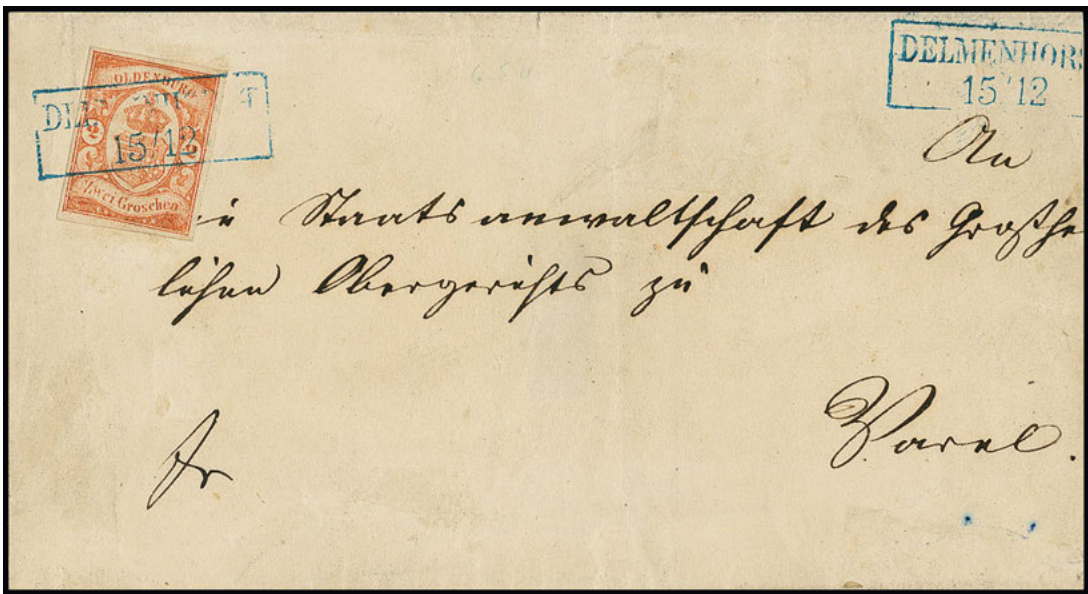 OLDENBURG
2 2
Zwei Groschen
15/12
DELMENHORS
15/12
An
die Staatsanwaltschaft des Großhe
lichen Obergerichts zu
Varel.
fr